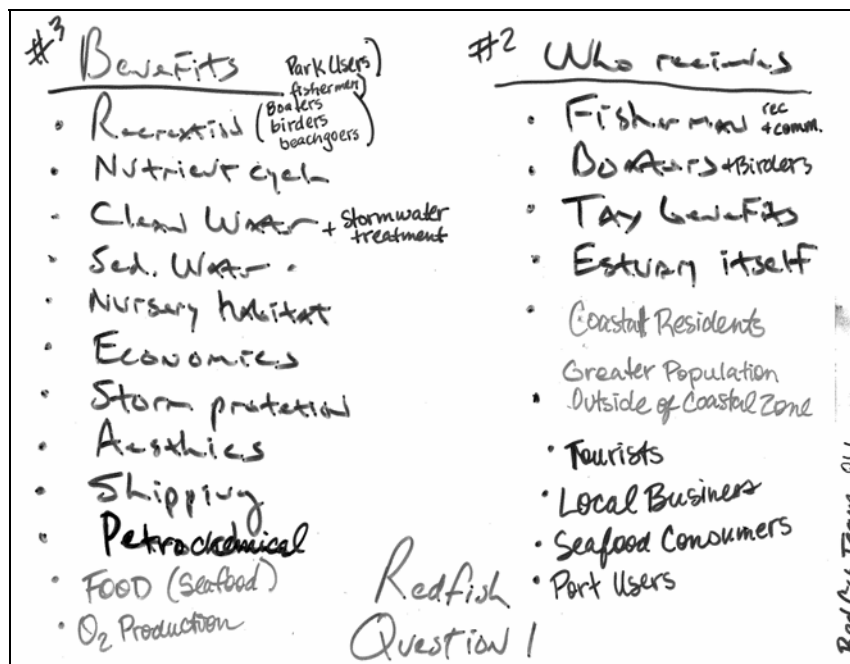 #3 Benefits
Park Users)
fishermen)
• Recreation (Boaters
birders
beachgoers)
• Nutrient cycle
• Clean Water + Stormwater
treatment
• Sed. Water
• Nursery habitat
• Economics
• Storm protetion
• Aesthics
• Shipping
• Petrochemical
• FOOD (Seafood)
• O2 Production
#2 Who recieves
• Fisherman rec
+ comm.
• Boaters + Birders
• Tay benefits
• Estuary itself
• Coastal Residents
Greater Population
• Outside of Coastal Zone
• Tourists
• Local Business
• Seafood Consumers
• Port Users
Redfish
Question 1